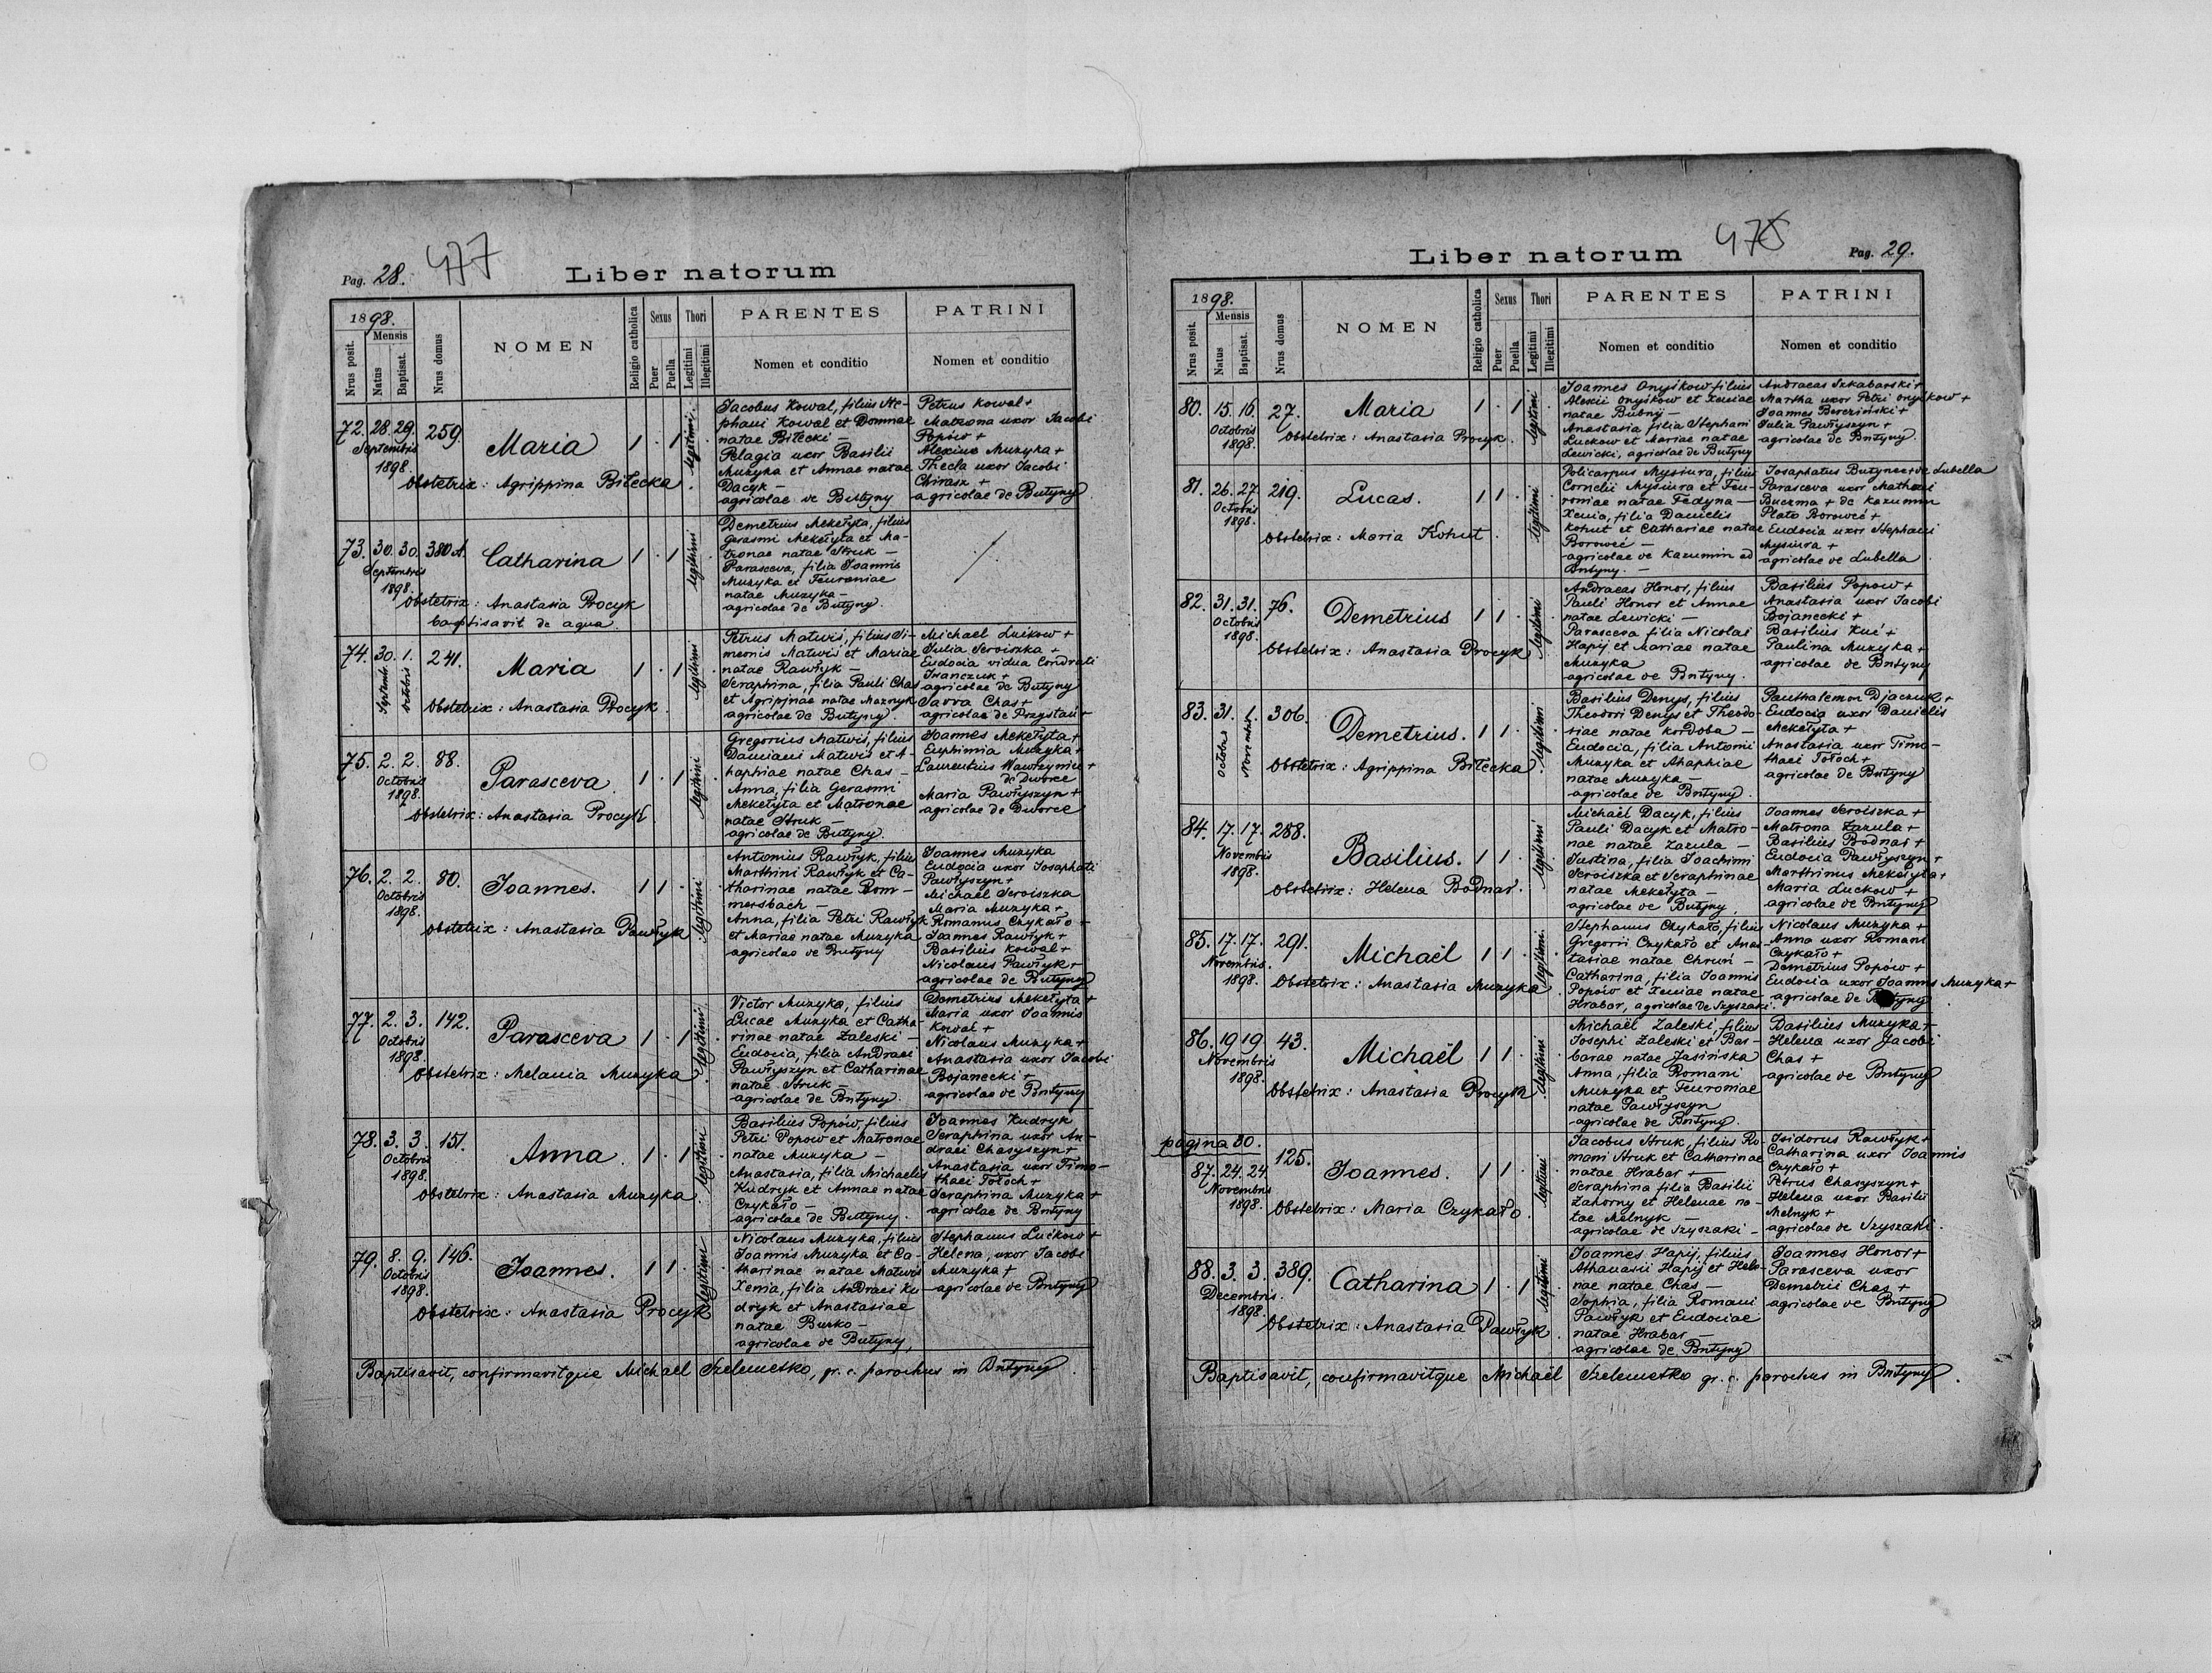 Pag. 28.
477
Liber natorum
1898.
Nrus posit.
Mensis
Natus
Baptisat.
Nrus domus
NOMEN
Religio catholica
Sexus
Puer
Puella
Thori
Legitimi
Illegitimi
PARENTES
Nomen et conditio
PATRINI
Nomen et conditio
72. 28. 29. 259. Maria 1 · 1 legitimi
Septembris
1898.
Obstetrix: Agrippina Bilecka
Jacobus Kowal, filius Ste-
phani Kowal et Domnae
natae Bilecki —
Pelagia uxor Basilii
Muzyka et Annae natae
Dacyk —
agricolae de Butyny
Petrus Kowal +
Matrona uxor Jacobi
Popów +
Alexius Muzyka +
Thecla uxor Jacobi
Chirasz +
agricolae de Butyny
73. 30. 30. 380 A. Catharina 1 · 1 legitimi
Septembris
1898.
Obstetrix: Anastasia Procyk
baptisavit de aqua.
Demetrius Mekełyta, filius
Gerasmi Mekełyta et Ma-
tronae natae Struk —
Parasceva, filia Joannis
Muzyka et Feuroniae
natae Muzyka —
agricolae de Butyny.
74. 30. 1. 241. Maria 1 · 1 legitimi
Septembr.
Octobris
Obstetrix: Anastasia Procyk
Petrus Matwiś, filius Si-
meonis Matwiś et Mariae
natae Rawłyk —
Seraphina, filia Pauli Chas
et Agripinae natae Maznyk
agricolae de Butyny.
Michael Luckow +
Julia Seroiszka +
Eudocia vidua Condrati
Iwanczuk +
agricolae de Butyny
Sawa Chas +
agricolae de Przystań +
75. 2. 2. 88. Parasceva 1 · 1 legitimi
Octobris
1898.
Obstetrix: Anastasia Procyk
Gregorius Matwiś, filius
Damiani Matwiś et A-
haphiae natae Chas —
Anna, filia Gerasmi
Mekełyta et Matronae
natae Struk —
agricolae de Butyny.
Joannes Mekełyta +
Euphimia Muzyka +
Laurentius Wawrzyniec +
de Dworce
Maria Pawłyszyn +
agricolae de Dworce
76. 2. 2. 80. Joannes. 1 1 · legitimi
Octobris
1898.
Obstetrix: Anastasia Pawłyk
Antonius Rawłyk, filius
Marthini Rawłyk et Ca-
tharinae natae Rom-
mersbach —
Anna, filia Petri Rawłyk
et Mariae natae Muzyka
agricolae de Butyny
Joannes Muzyka
Eudocia uxor Josaphati
Pawłyszyn +
Michaël Seroiszka
Maria Muzyka +
Romanus Czykało +
Joannes Rawłyk +
Basilius Kowal +
Nicolaus Pawłyk +
agricolae de Butyny
77. 2. 3. 142. Parasceva 1 · 1 legitimi
Octobris
1898.
Obstetrix: Melania Muzyka
Victor Muzyka, filius
Lucae Muzyka et Catha-
rinae natae Zaleski —
Eudocia, filia Andraei
Pawłyszyn et Catharinae
natae Struk —
agricolae de Butyny.
Demetrius Mekełyta +
Maria uxor Joannis
Kowal +
Nicolaus Muzyka +
Anastasia uxor Jacobi
Bojanecki +
agricolae de Butyny
78. 3. 3. 151. Anna 1 · 1 legitimi
Octobris
1898.
Obstetrix: Anastasia Muzyka
Basilius Popów, filius
Petri Popow et Matronae
natae Muzyka —
Anastasia, filia Michaelis
Kudryk et Annae natae
Czykało —
agricolae de Butyny.
Joannes Kudryk
Seraphina uxor An-
draei Chasyszyn +
Anastasia uxor Timo-
thaei Tołoch +
Seraphina Muzyka +
agricolae de Butyny
79. 8. 9. 146. Joannes. 1 1 · legitimi
Octobris
1898.
Obstetrix: Anastasia Procyk
Nicolaus Muzyka, filius
Joannis Muzyka et Ca-
tharinae natae Matwiś
Xenia, filia Andraei Ku-
dryk et Anastasiae
natae Burko —
agricolae de Butyny,
Stephanus Luckow +
Helena, uxor Jacobi
Muzyka +
agricolae de Butyny
Baptisavit, confirmavitque Michael Szelemetko, gr. c. parochus in Butyny.
Liber natorum
478
Pag. 29.
1898.
Nrus posit.
Mensis
Natus
Baptisat.
Nrus domus
NOMEN
Religio catholica
Sexus
Puer
Puella
Thori
Legitimi
Illegitimi
PARENTES
Nomen et conditio
PATRINI
Nomen et conditio
80. 15. 16. 27. Maria 1 · 1 legitimi
Octobris
1898.
Obstetrix: Anastasia Procyk.
Joannes Onyśkow filius
Alexii Onyśkow et Xeniae
natae Bubnij —
Anastasia filia Stephani
Luckow et Mariae natae
Lewicki, agricolae de Butyny
Andraeas Szkabarski +
Martha uxor Petri Onyśkow +
Joannes Bereziński +
Julia Pawłyszyn +
agricolae de Butyny.
81. 26. 27. 219. Lucas. 1 1 · legitimi
Octobris
1898.
Obstetrix: Maria Kohut
Policarpus Mysiura, filius
Cornelii Mysiura et Feu-
roniae natae Fedyna —
Xenia, filia Danielis
Kohut et Cathariae natae
Borowec —
agricolae de Kazumin ad
Butyny. —
Josaphatus Butynec + de Lubella
Parasceva uxor Mathaei
Buczma + de Kazumin
Plato Borowec +
Eudocia uxor Stephani
Mysiura +
agricolae de Lubella
82. 31. 31. 76. Demetrius 1 1 · legitimi
Octobris
1898.
Obstetrix: Anastasia Procyk
Andraeas Honor, filius
Pauli Honor et Annae
natae Lewicki —
Parasceva filia Nicolai
Hapij et Mariae natae
Muzyka
agricolae de Butyny.
Basilius Popow +
Anastasia uxor Jacobi
Bojanecki +
Basilius Kuć +
Paulina Muzyka +
agricolae de Butyny
83. 31. 1. 306. Demetrius. 1 1 · legitimi
Octobris
Novembris
Obstetrix: Agrippina Bilecka
Basilius Denys, filius
Theodori Denys et Theodo-
siae natae Kordoba —
Eudocia, filia Antonii
Muzyka et Ahaphiae
natae Muzyka —
agricolae de Butyny.
Panthalemon Djaczuk +
Eudocia uxor Danielis
Mekełyta +
Anastasia uxor Timo-
thaei Tołoch +
agricolae de Butyny
84. 17. 17. 288. Basilius. 1 1 · legitimi
Novembris
1898.
Obstetrix: Helena Bodnar.
Michaël Dacyk, filius
Pauli Dacyk et Matro-
nae natae Zazula —
Justina, filia Joachimi
Seroiszka et Seraphinae
natae Mekełyta —
agricolae de Butyny,
Joannes Seroiszka +
Matrona Zazula +
Basilius Bodnar +
Eudocia Pawłyszyn +
Marthinus Mekełyta +
Maria Luckow +
agricolae de Butyny
85. 17. 17. 291. Michaël 1 1 · legitimi
Novembris.
1898.
Obstetrix: Anastasia Muzyka
Stephanus Czykało, filius
Gregorii Czykało et Anas-
tasiae natae Chruń —
Catharina, filia Joannis
Popów et Xeniae natae
Hrabar, agricolae de Szyszaki.
Nicolaus Muzyka +
Anna uxor Romani
Czykało +
Demetrius Popów +
Eudocia uxor Joannis Muzyka +
agricolae de Butyny
86. 19 19. 43. Michaël 1 1 · legitimi
Novembris
1898.
Obstetrix: Anastasia Procyk
Michaël Zaleski, filius
Josephi Zaleski et Bar-
barae natae Jasińska
Anna, filia Romani
Muzyka et Feuroniae
natae Pawłyszyn
agricolae de Butyny.
Basilius Muzyka +
Helena uxor Jacobi
Chas +
agricolae de Butyny
pagina 80.
87. 24. 24 125. Joannes. 1 1 · legitimi
Novembris
1898.
Obstetrix: Maria Czykało.
Jacobus Struk, filius Ro-
mani Struk et Catharinae
natae Hrabar +
Seraphina filia Basilii
Zahorny et Helenae na-
tae Melnyk —
agricolae de Szyszaki —
Isidorus Rawłyk +
Catharina uxor Joannis
Czykało +
Petrus Chasyszyn +
Helena uxor Basilii
Melnyk +
agricolae de Szyszaki.
88. 3. 3. 389. Catharina 1 · 1 legitimi
Decembris.
1898.
Obstetrix: Anastasia Pawłyk
Joannes Hapij, filius
Athanasii Hapij et Hele-
nae natae Chas —
Sophia, filia Romani
Pawłyk et Eudociae
natae Hrabar —
agricolae de Butyny
Joannes Honor +
Parasceva uxor
Demetrii Chas +
agricolae de Butyny
Baptisavit, confirmavitque Michaël Szelemetko gr. c. parochus in Butyny.